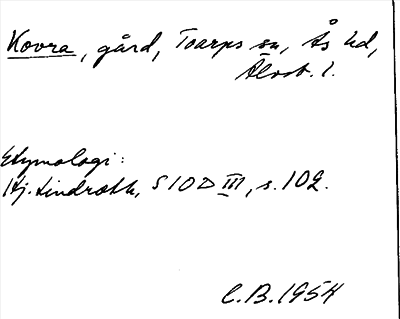 Kovra, gård, Toarps sn, Ås hd,
Älvsb. l.
Etymologi:
Hj. Lindroth, SIOD III, s. 102.
C.B. 1954